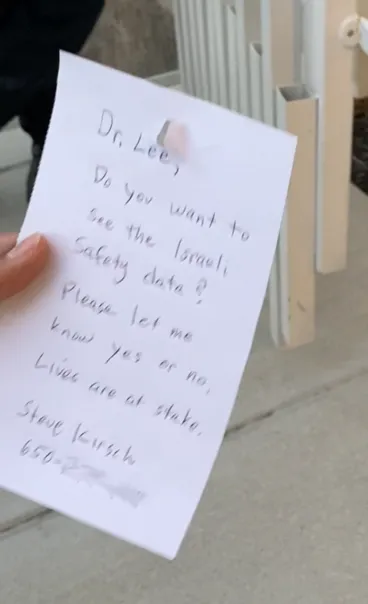 Dr. Lee,
Do you want to
see the Israeli
Safety data?
Please let me
know yes or no.
Lives are at stake.
Steve Kirsch
650-